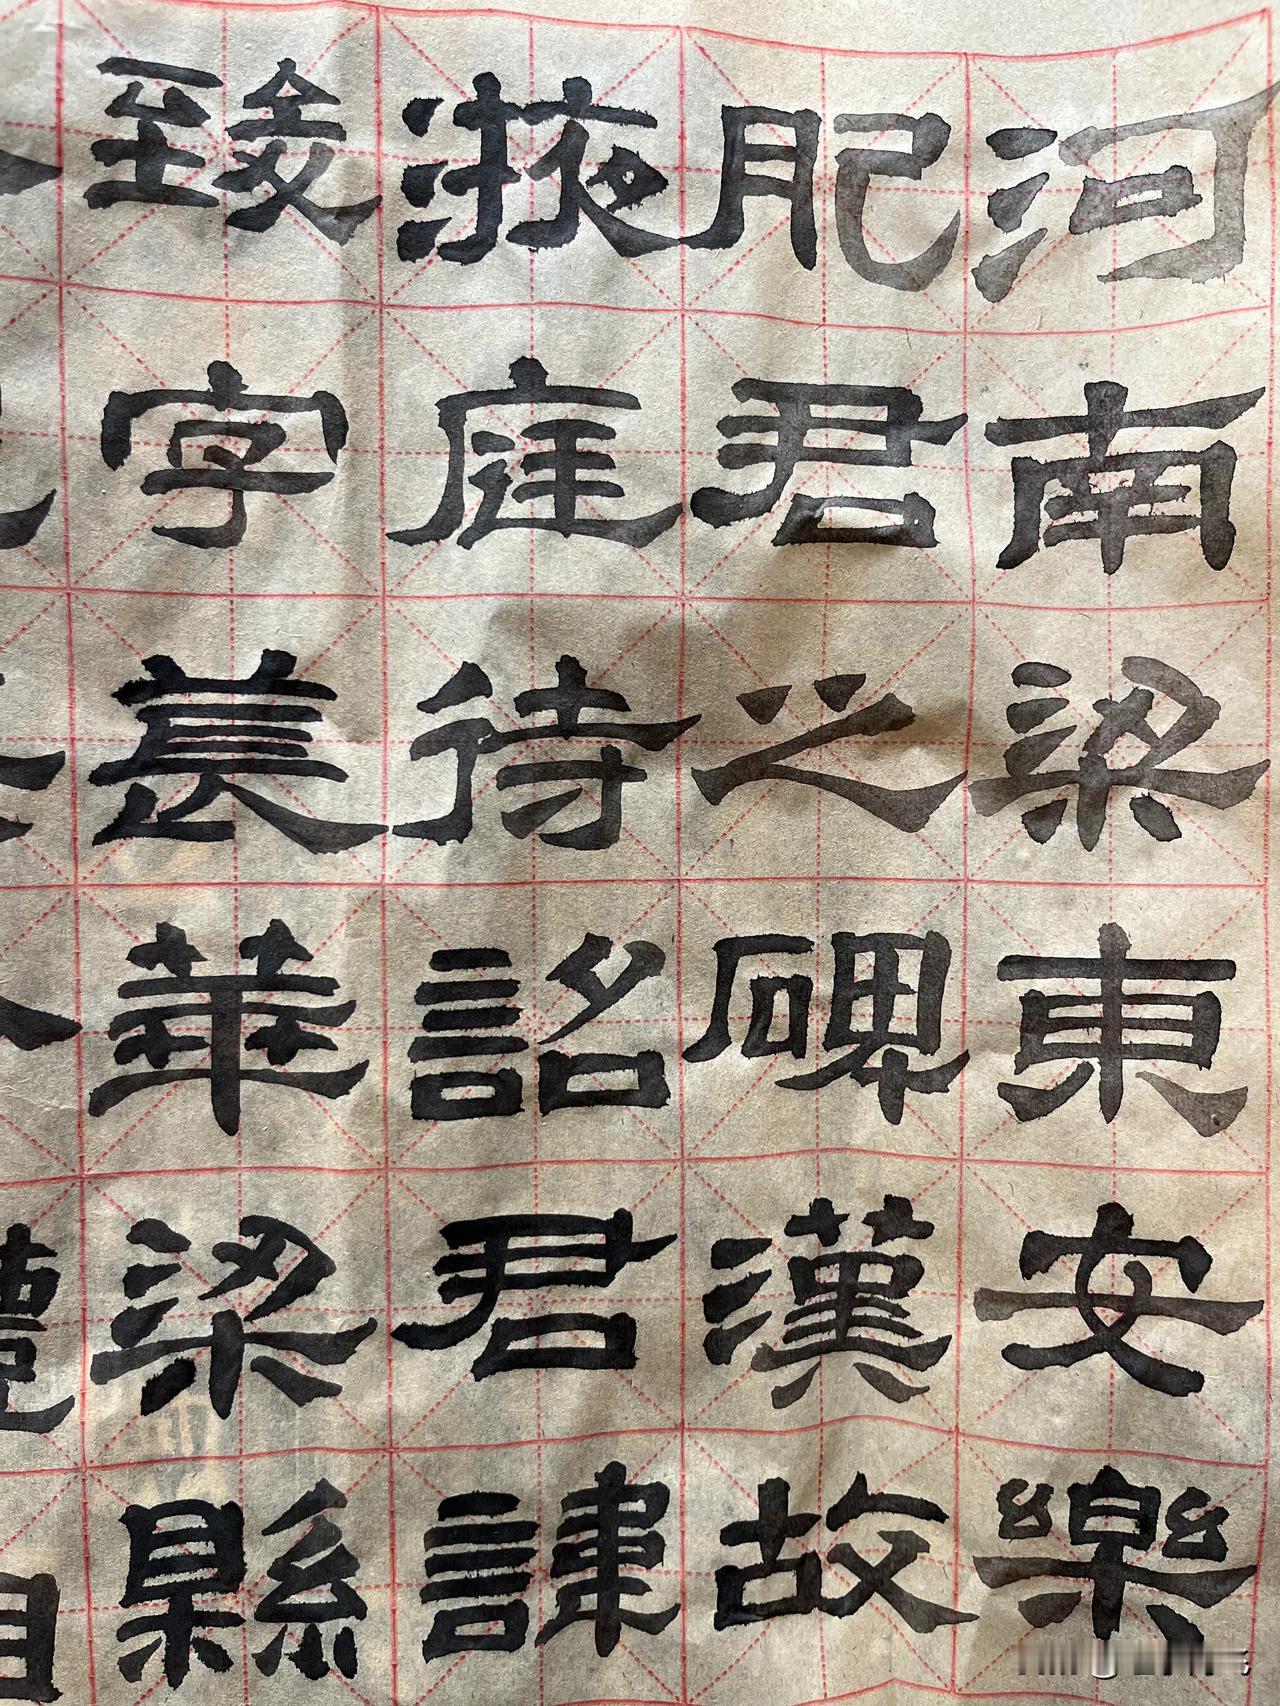 河南梁東安樂
肥君之碑漢故
掖庭待詔君諱
致字萇華梁縣